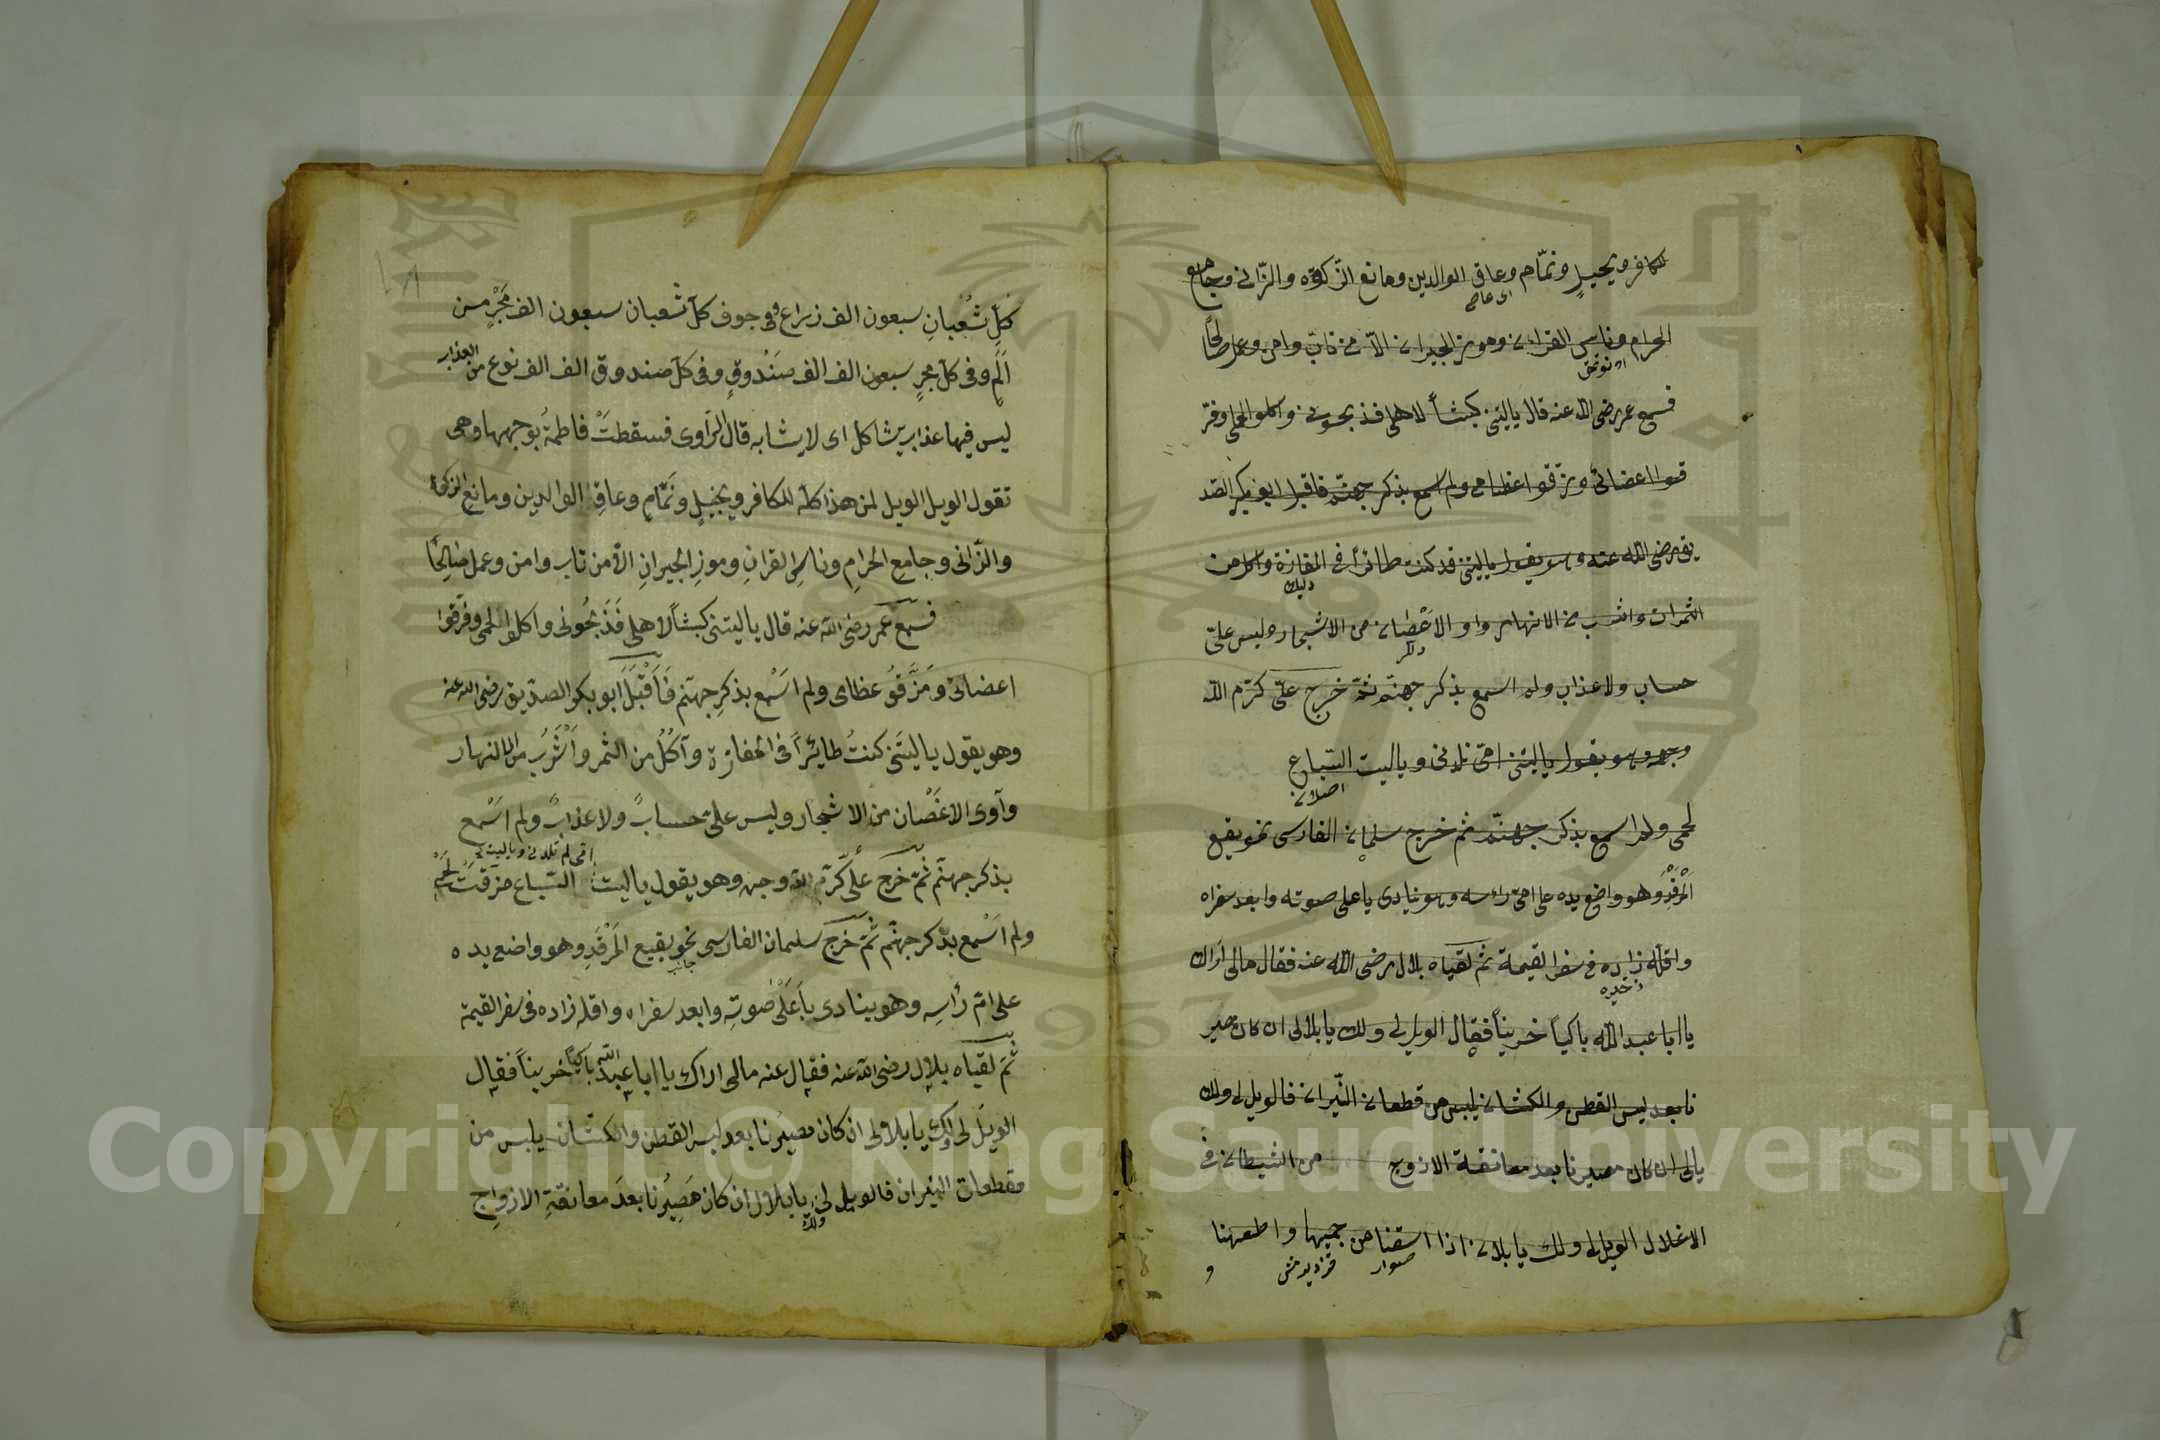 للكافر ويخيل ونمّام وعاق الوالدين ومانع الزّكوة والزّانى وجامع
اى عاصى
الحرام وناسى القرآن وموذ الجيران الّا من تاب وامن وعمل صالحًا
فسمع عمر رضى اللّه عنه قال ياليتنى كبشاً لاهلى فذبحونى واكلو الحمى وفرّ
قوا اعضائى ومزّقوا عظامى ولم اسمع بذكر جهنّم فاقبل ابو بكر الصّد
يق رضى اللّه عنه وهو يقول ياليتنى قد كنت طائراً فى المفازة واكل من
الثمرات واشرب من الانهار واو الاغصان من الاشجار وليس علىّ
حساب ولا عذاب ولم اسمع بذكر جهنّم ثمّ خرج علىّ كرّم اللّه
وجهه وهو يقول ياليتنى امّى تلدنى وياليت السّباع
لحمى ولم اسمع بذكر جهنّم ثم خرج سلمان الفارسى نحو بقيع
المرقد وهو واضع يده على امّ رأسه وهو ينادى ياعلى صوته وابعد سفراه
واقلّه زايده فى سفر القيمة ثمّ لقياه بلال رضى اللّه عنه فقال مالى اراك
ذخيره
يا ابا عبد اللّه باكياً خريناً فقال الويل لى ولك يا بلال ان كان مصير
نا بعد لبس القطن والكتان يلبس من قطعان النّيران فالويل لى ولك
يالى ان كان مصيرنا بعد معانقة الازوج من الشيطان فى
الاغلال الويل لى ولك يا بلال اذا اسقنا من حميها واطعمنا
و
كلّ ثُعْبانٍ سبعون الف زراع وفى جوف كلّ ثعبان سبعون الف مَجْرٍ من
اَلَمٍ وفى كلّ مجرٍ سبعون الف الف صَنْدُوقٍ وفى كلّ صندوق الف الف نوع من العذاب
ليس فيها عذاب يشاكل اى لا يشابه قال الرّاوى فسقطتْ فاطمةُ بوجهها وهى
تقول الويل الويل لمن هذا كلّه للكافر ويخيلٍ ونَمّامٍ وعاقِ الوالدين ومانعِ الزكوة
والزّانى وجامعِ الحرامِ وناسِى القرانِ وموزِ الجيرانِ الّا من تاب وامن وعمل صالِحًا
فسمع عمر رضى اللّه عنه قال ياليتنى كبشاً لاهلى فَذَبَحُونى واكلوا الحمى وفرّقوا
اعضائى ومَزَّقوُ عظامى ولم اسْمع بذكرِ جهنّم فَاَقْبَلَ ابو بكر الصدّيق رضى اللّه عنه
وهو يقول ياليتَنى كنتُ طايئراً فى المفازة وآكُلُ من الثمر واَشْرَبُ من الانهار
وآوى الاغْصان من الاشجار وليس علىّ حسابٌ ولا عذابٌ ولم اسْمع
امّى لم تلدنى وياليت
بذكر جهنّم ثمّ خرج علىُّ كرّم اللّه وجهه وهو يقول ياليت السّباع مزقتْ لحمى
ولم اَسْمع بذكر جهنّم ثمّ خرج سلمان الفارسى نحو بقيع المَرْقَدِ وهو واضع يده
جانب
على امّ رأسِه وهو ينادى باَعَلْى صَوتِهِ وابعد سفراه واقله زاده فى سفر القيمة
ثمّ لقياه بلال رضى اللّه عنه فقال عنه مالى اراك يا ابا عبد اللّه باكياً خريناً فقال
الويل لى ولك يا بلال ان كان مصيرنا بعد لبس القطن والكتّان يلبس من
مقطعات النيران فالويل لى يا بلال ان كان مَصِيرُنا بعدَ معانقةِ الازواجِ
ولك
Copyright © King Saud University
1957